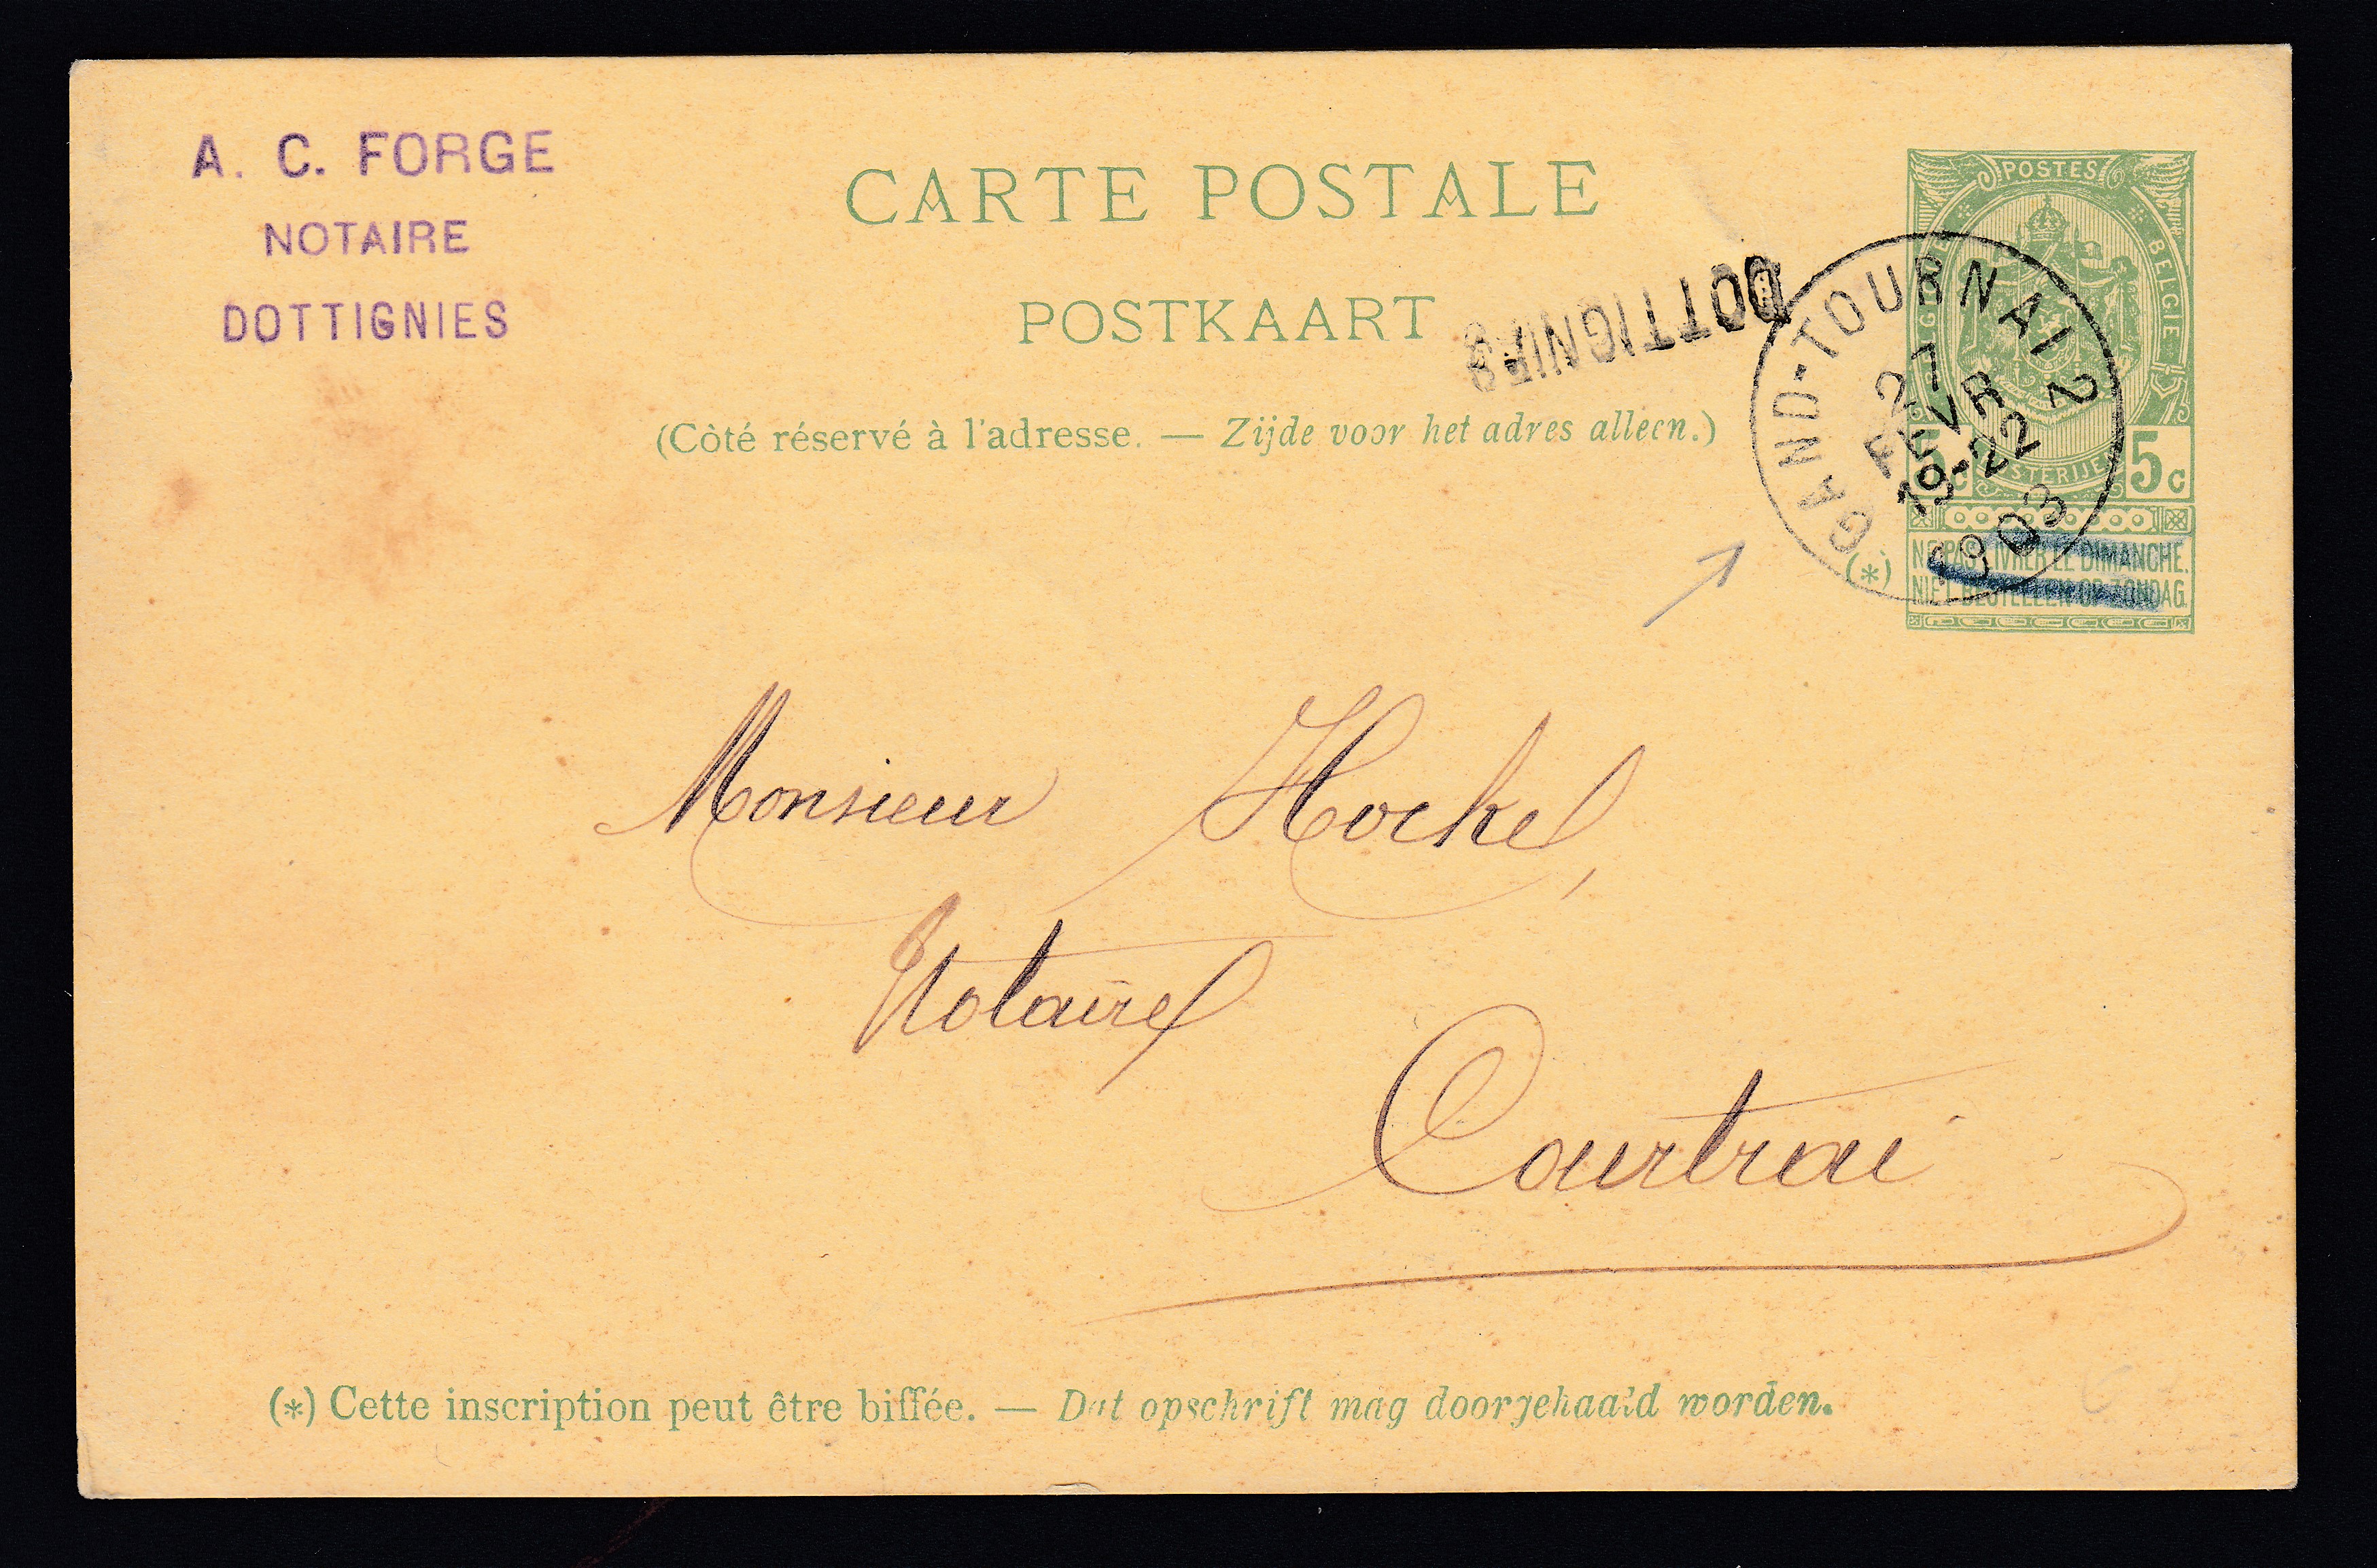 A. C. FORGE
NOTAIRE
DOTTIGNIES
CARTE POSTALE
POSTKAART
DOTTIGNIES
(Côté réservé à l'adresse. — Zijde voor het adres alleen.)
POSTES
BELGIQUE
BELGIË
POSTERIJEN
5c 5c
GAND-TOURNAI 2
27
FEVR
19-22
1903
(*)
NE PAS LIVRER LE DIMANCHE.
NIET BESTELLEN OP ZONDAG.
Monsieur Hockel,
Notaire
Courtrai
(*) Cette inscription peut être biffée. — Dat opschrift mag doorgehaald worden.